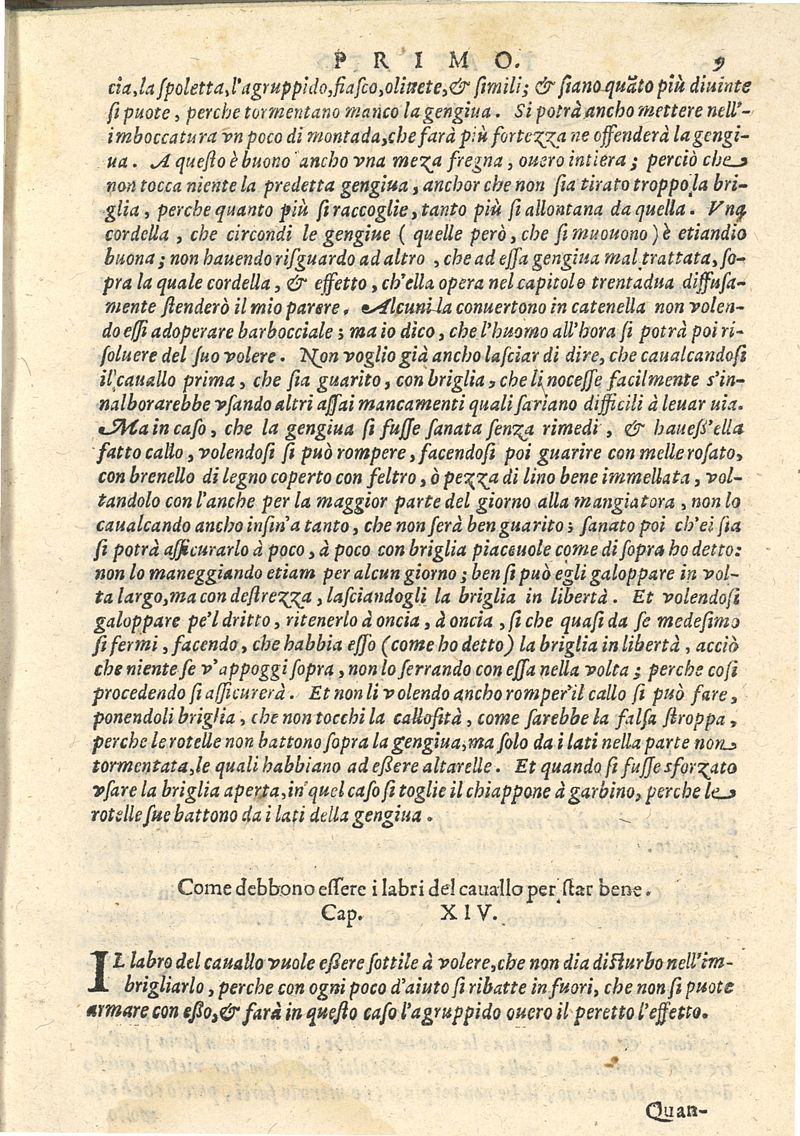 PRIMO. 9
cia, la spoletta, l'agruppido, fiasco, oliuete, & simili; & siano quāto più diuinte
si puote, perche tormentano manco la gengiua. Si potrà ancho mettere nell'-
imboccatura vn poco di montada, che farà più fortezza ne offenderà la gengi-
ua. A questo è buono ancho vna meza fregna, ouero intiera; perciò che
non tocca niente la predetta gengiua, anchor che non sia tirato troppo la bri-
glia, perche quanto più si raccoglie, tanto più si allontana da quella. Vna
cordella, che circondi le gengiue (quelle però, che si muouono) è etiandio
buona; non hauendo risguardo ad altro, che ad essa gengiua mal trattata, so-
pra la quale cordella, & effetto, ch'ella opera nel capitolo trentadua diffusa-
mente stenderò il mio parere. Alcuni la conuertono in catenella non volen-
do essi adoperare barbocciale; ma io dico, che l'huomo all'hora si potrà poi ri-
soluere del suo volere. Non voglio già ancho lasciar di dire, che caualcandosi
il cauallo prima, che sia guarito, con briglia, che li nocesse facilmente s'in-
nalborarebbe vsando altri assai mancamenti quali sariano difficili à leuar uia.
Ma in caso, che la gengiua si fusse sanata senza rimedi, & hauess'ella
fatto callo, volendosi si può rompere, facendosi poi guarire con melle rosato,
con brenello di legno coperto con feltro, ò pezza di lino bene immellata, vol-
tandolo con l'anche per la maggior parte del giorno alla mangiatora, non lo
caualcando ancho insin'a tanto, che non serà ben guarito; sanato poi ch'ei sia
si potrà assicurarlo à poco, à poco con briglia piaceuole come di sopra ho detto:
non lo maneggiando etiam per alcun giorno; ben si può egli galoppare in vol-
ta largo, ma con destrezza, lasciandogli la briglia in libertà. Et volendosi
galoppare pe'l dritto, ritenerlo à oncia, à oncia, si che quasi da se medesimo
si fermi, facendo, che habbia esso (come ho detto) la briglia in libertà, acciò
che niente se v'appoggi sopra, non lo serrando con essa nella volta; perche cosi
procedendo si assicurerà. Et non li volendo ancho romper'il callo si può fare,
ponendoli briglia, che non tocchi la callosità, come sarebbe la falsa stroppa,
perche le rotelle non battono sopra la gengiua, ma solo da i lati nella parte non
tormentata, le quali habbiano ad essere altarelle. Et quando si fusse sforzato
vsare la briglia aperta, in quel caso si toglie il chiappone à garbino, perche le
rotelle sue battono da i lati della gengiua.
Come debbono essere i labri del cauallo per star bene.
Cap. XIV.
IL labro del cauallo vuole essere sottile à volere, che non dia disturbo nell'im-
brigliarlo, perche con ogni poco d'aiuto si ribatte in fuori, che non si puote
armare con esso, & farà in questo caso l'agruppido ouero il peretto l'effetto.
Quan-